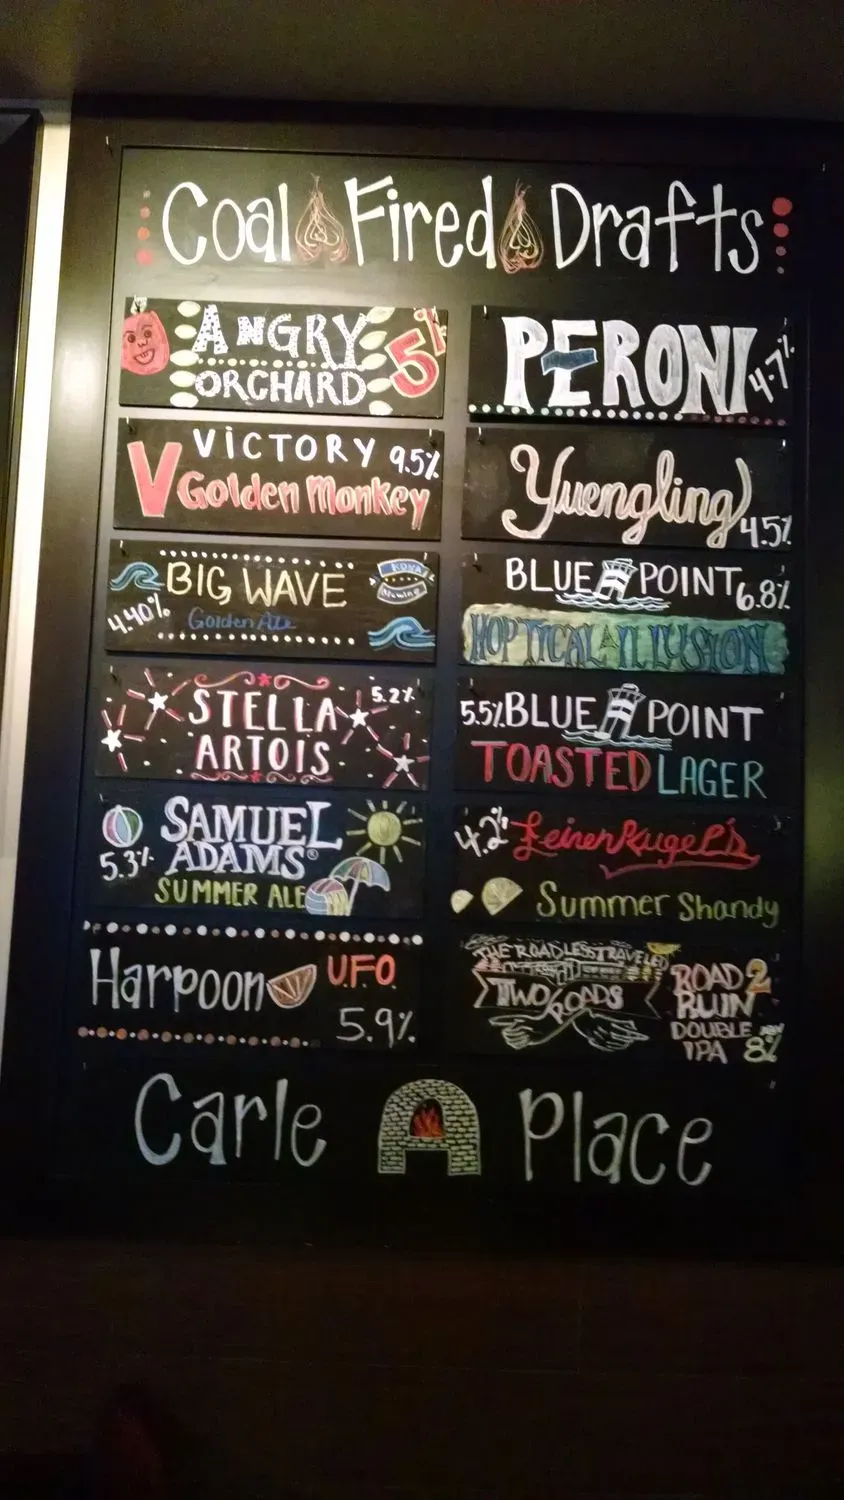 Coal Fired Drafts
ANGRY
ORCHARD
5%
VICTORY 9.5%
V Golden Monkey
BIG WAVE
KONA
Brewing
4.40% Golden Ale
STELLA 5.2%
ARTOIS
SAMUEL
ADAMS®
5.3%
SUMMER ALE
Harpoon U.F.O.
5.9%
PERONI 4.7%
Yuengling
4.5%
BLUE POINT 6.8%
HOPTICAL ILLUSION
5.5% BLUE POINT
TOASTED LAGER
4.2% LeinenKugel's
Summer Shandy
THE ROAD LESS TRAVELED
TWO ROADS
ROAD 2
RUIN
DOUBLE
IPA 8%
Carle Place